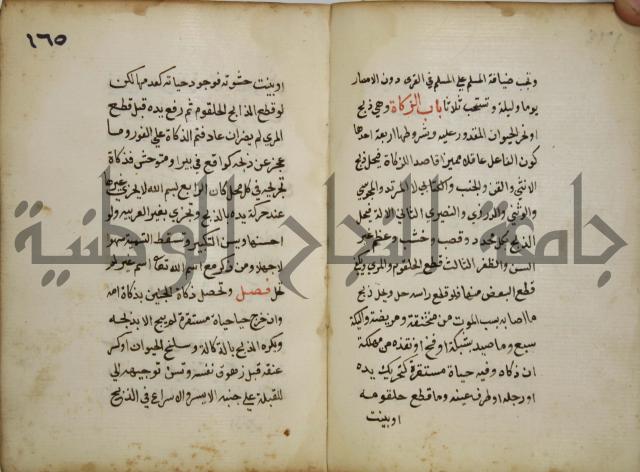 وتجب ضيافة المسلم على المسلم في القرى دون الامصار
يوما وليلة وتستحب ثلاثا باب الزكاة وهي ذبح
او نحر الحيوان المقدور عليه وشروطها اربعة احدها
كون الفاعل عاقلا مميزا قاصدا للزكاة فيحل ذبح
الانثى والقن والجنب والكتابي لا المرتد والمجوسي
والوثني والدرزي والنصيري الثاني الالة فيحل
الذبح بكل محدد وقصب وخشب وعظم غير
السن والظفر الثالث قطع الحلقوم والمري ويكفي
قطع البعض منهما فلو قطع راسه حل ويحل ذبح
ما اصابه سبب الموت من منخنقة ومريضة واكيلة
سبع وما صيد بشبكة او فخ او انقذه من مهلكة
ان ذكاه وفيه حياة مستقرة كتحريك يده
او رجله او طرف عينه وما قطع حلقومه
او بينت
١٦٥
او بينت حشوته فوجود حياته كعدمها لكن
لو قطع الذابح الحلقوم ثم رفع يده قبل قطع
المري لم يضر ان عاد فتم الذكاة على الفور وما
عجز عن ذبحه كواقع في بير او متوحش فذكاته
بجرحه في كل محل كان الرابع بسم الله لا يجزي غيرها
عند حركة يده بالذبح وتجزي بغير العربية ولو
احسنها ويسن التكبير وتسقط التسمية سهوا
لا جهلا ومن ذكر مع اسم الله تعالى اسم غيره لم
تحل فصل وتحصل ذكاة الجنين بذكاة امه
وان خرج حيا حياة مستقرة لم يبح الا بذبحه
ويكره الذبح بالة كالة وسلخ الحيوان او كسر
عنقه قبل زهوق نفسه وتسن توجيهه الى
للقبلة على جنبه الايسر والاسراع في الذبح
جامعة النجاح الوطنية